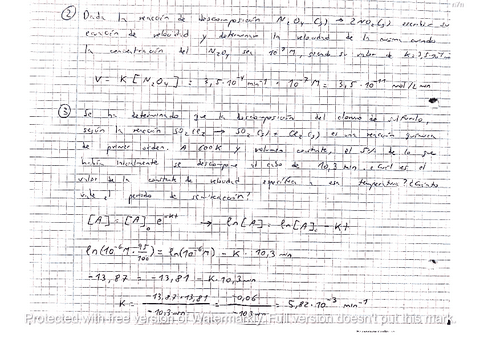 ② Dada la reacción de descomposición N₂O₄ (g) → 2NO₂(g) escribir su
ecuación de velocidad y determinar la velocidad de la misma cuando
la concentración del N₂O₄ sea 10⁻⁷ M, siendo su valor de K = 3,5·10⁻⁴
V = K [N₂O₄] = 3,5·10⁻⁴ min⁻¹ · 10⁻⁷ M = 3,5·10⁻¹¹ mol/L min
③ Se ha determinado que la descomposición del cloruro de sulfurilo,
según la reacción SO₂Cl₂ → SO₂(g) + Cl₂(g) es una reacción química
de primer orden. A 600K y volumen constante, el 5% de lo que
había inicialmente se descompone al cabo de 10,3 min. ¿Cuál es el
valor de la constante de velocidad específica a esa temperatura? ¿Cuánto
vale el periodo de semireacción?
[A] = [A]₀ e⁻ᴷᵗ → ln[A] = ln[A]₀ - Kt
ln(10⁻⁶M · 95/100) = ln(10⁻⁶M) - K · 10,3 min
-13,87 = -13,81 - K · 10,3 min
K = -13,87+13,81 / -10,3 min = -0,06 / -10,3 min = 5,82·10⁻³ min⁻¹
Protected with free version of Watermarkly. Full version doesn't put this mark.